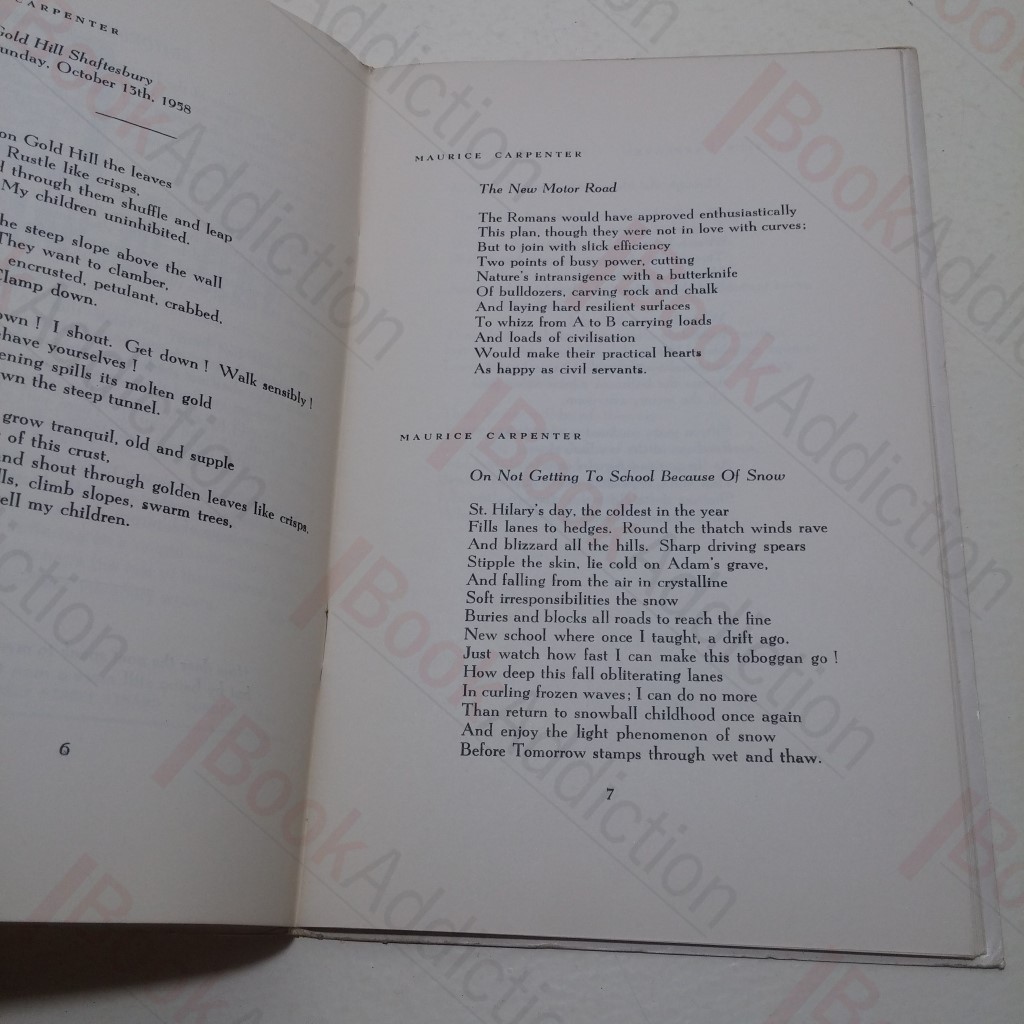 CARPENTER
Gold Hill Shaftesbury
unday, October 13th, 1958
on Gold Hill the leaves
Rustle like crisps,
through them shuffle and leap
My children uninhibited.
he steep slope above the wall
They want to clamber,
encrusted, petulant, crabbed,
Clamp down.
own ! I shout. Get down ! Walk sensibly !
have yourselves !
ening spills its molten gold
wn the steep tunnel.
grow tranquil, old and supple
of this crust,
nd shout through golden leaves like crisps,
lls, climb slopes, swarm trees,
ell my children.
6
MAURICE CARPENTER
The New Motor Road
The Romans would have approved enthusiastically
This plan, though they were not in love with curves;
But to join with slick efficiency
Two points of busy power, cutting
Nature's intransigence with a butterknife
Of bulldozers, carving rock and chalk
And laying hard resilient surfaces
To whizz from A to B carrying loads
And loads of civilisation
Would make their practical hearts
As happy as civil servants.
MAURICE CARPENTER
On Not Getting To School Because Of Snow
St. Hilary's day, the coldest in the year
Fills lanes to hedges. Round the thatch winds rave
And blizzard all the hills. Sharp driving spears
Stipple the skin, lie cold on Adam's grave,
And falling from the air in crystalline
Soft irresponsibilities the snow
Buries and blocks all roads to reach the fine
New school where once I taught, a drift ago.
Just watch how fast I can make this toboggan go !
How deep this fall obliterating lanes
In curling frozen waves; I can do no more
Than return to snowball childhood once again
And enjoy the light phenomenon of snow
Before Tomorrow stamps through wet and thaw.
7
BookAddiction